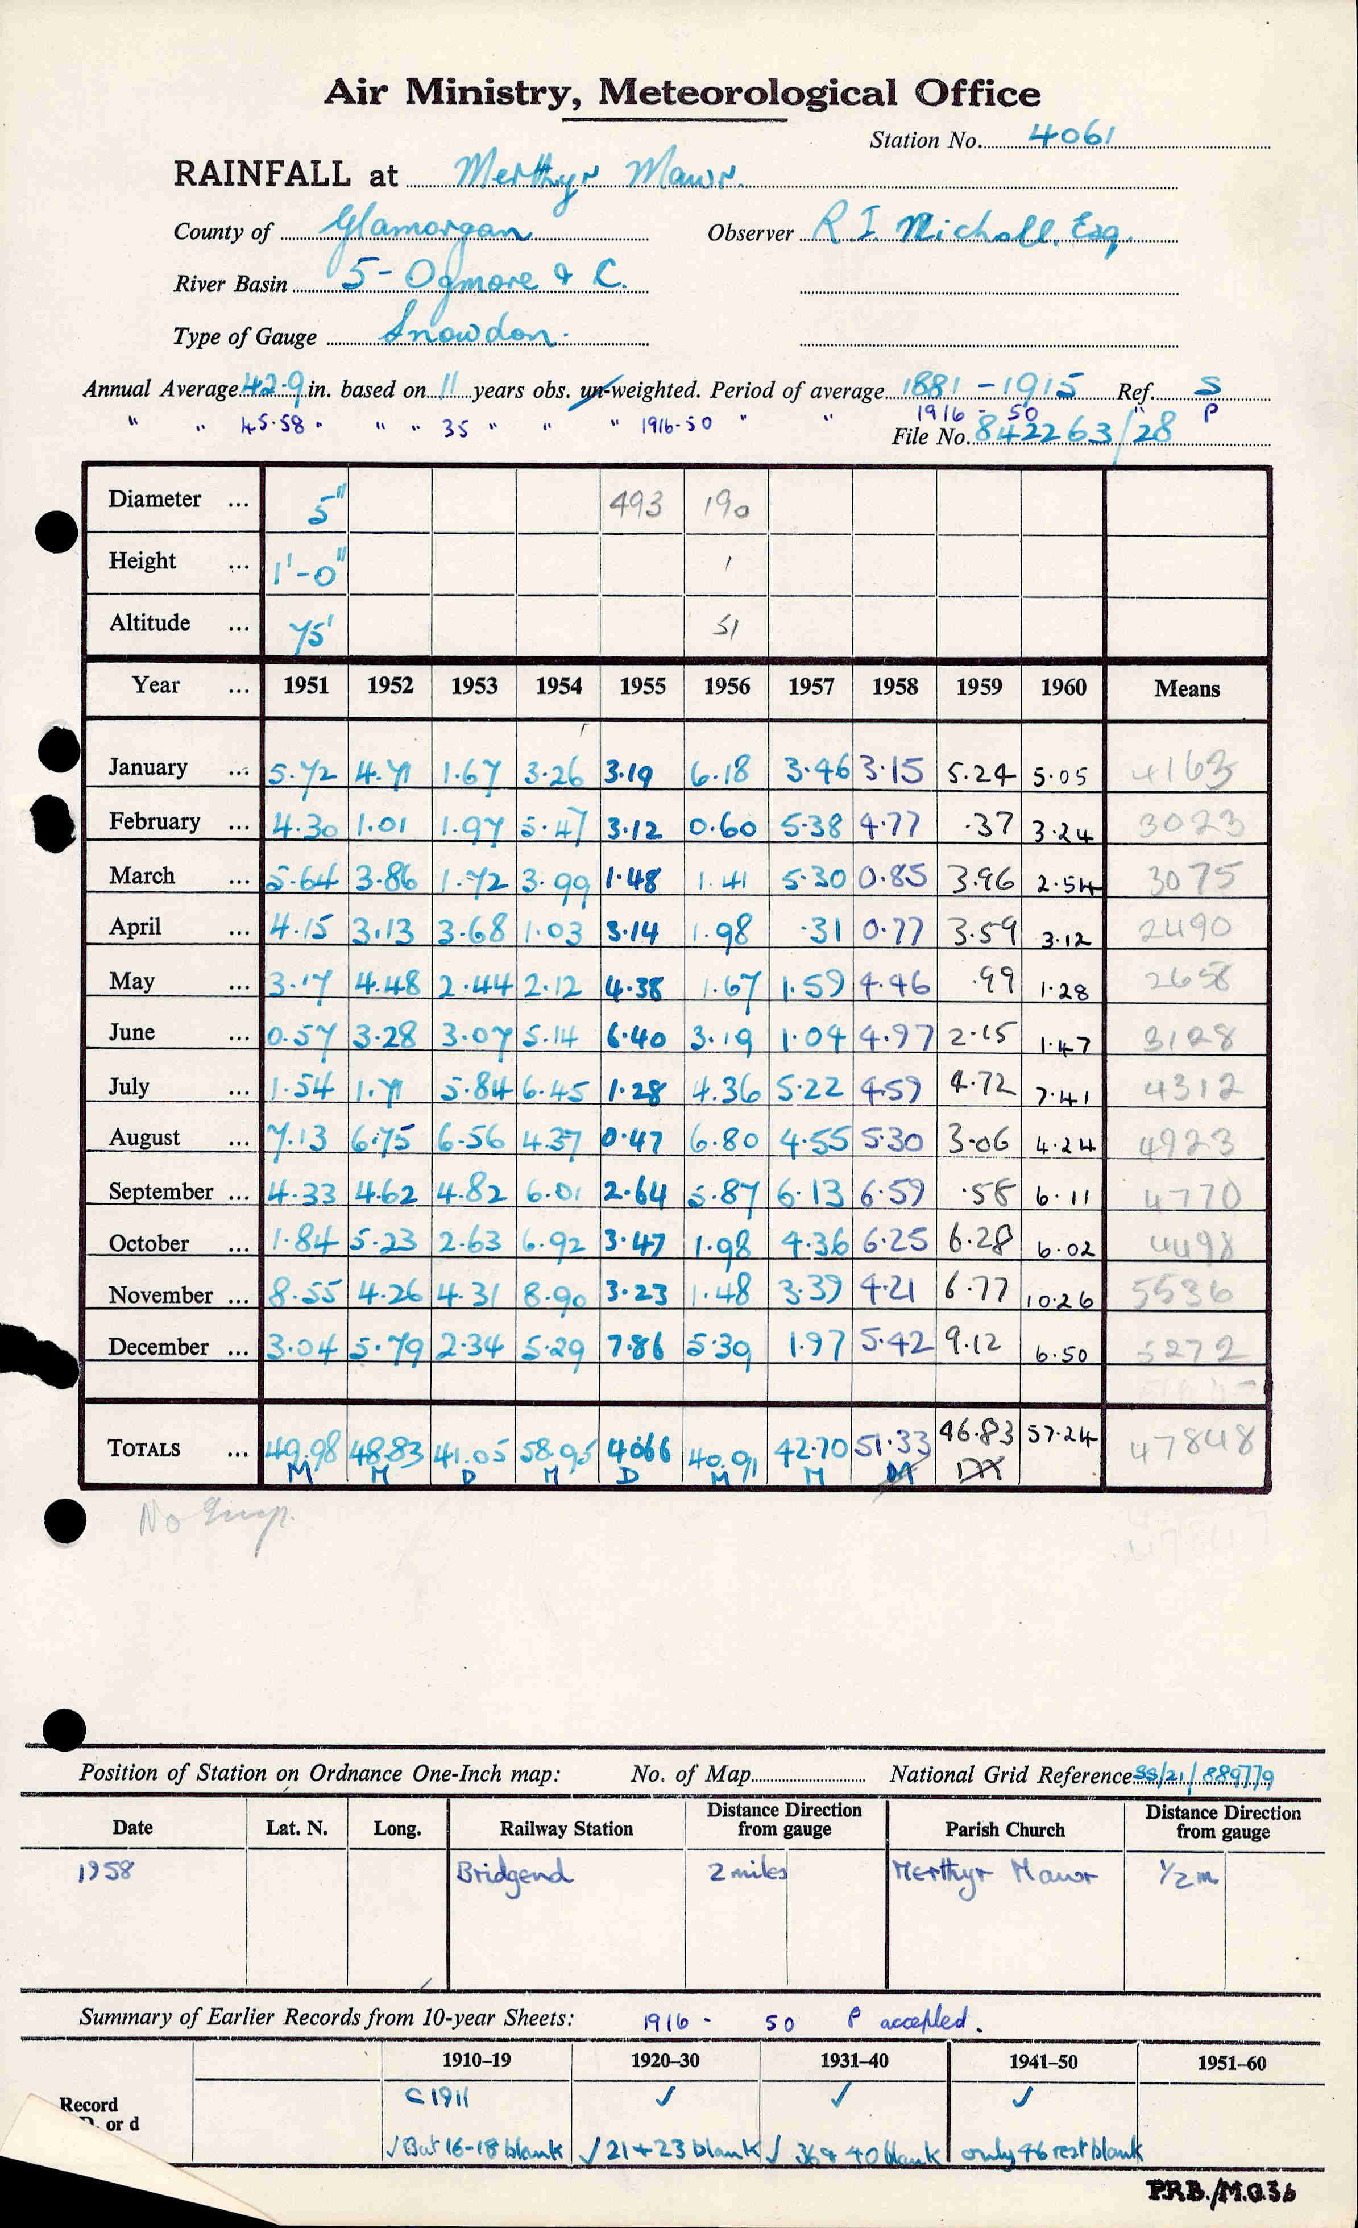 Air Ministry, Meteorological Office
Station No. 4061
RAINFALL at Merthyr Mawr.
County of Glamorgan Observer R I Nicholl. Esq.
River Basin 5- Ogmore & C.
Type of Gauge Snowdon.
Annual Average 42.9 in. based on 11 years obs. un-weighted. Period of average 1881 - 1915 Ref. S
" " 45.58 " " " 35 " " " 1916-50 " " 1916 - 50 P
File No. 842263/28
Diameter ... 5" 493 190
Height ... 1'-0" 1
Altitude ... 75' 51
Year ... 1951 1952 1953 1954 1955 1956 1957 1958 1959 1960 Means
January ... 5.72 4.71 1.67 3.26 3.19 6.18 3.46 3.15 5.24 5.05 4163
February ... 4.30 1.01 1.97 5.47 3.12 0.60 5.38 4.77 .37 3.24 3023
March ... 5.64 3.86 1.72 3.99 1.48 1.41 5.30 0.85 3.96 2.54 3075
April ... 4.15 3.13 3.68 1.03 3.14 1.98 .31 0.77 3.59 3.12 2490
May ... 3.17 4.48 2.44 2.12 4.38 1.67 1.59 4.46 .99 1.28 2658
June ... 0.57 3.28 3.07 5.14 6.40 3.19 1.04 4.97 2.15 1.47 3128
July ... 1.54 1.71 5.84 6.45 1.28 4.36 5.22 4.59 4.72 7.41 4312
August ... 7.13 6.75 6.56 4.37 0.47 6.80 4.55 5.30 3.06 4.24 4923
September ... 4.33 4.62 4.82 6.01 2.64 5.87 6.13 6.59 .58 6.11 4770
October ... 1.84 5.23 2.63 6.92 3.47 1.98 4.36 6.25 6.28 6.02 4498
November ... 8.55 4.26 4.31 8.90 3.23 1.48 3.39 4.21 6.77 10.26 5536
December ... 3.04 5.79 2.34 5.29 7.86 5.39 1.97 5.42 9.12 6.50 5272
TOTALS ... 49.98 48.83 41.05 58.95 40.66 40.91 42.70 51.33 46.83 57.24 47848
M M D M D M M
No
Position of Station on Ordnance One-Inch map: No. of Map National Grid Reference SS/21/889779
Date Lat. N. Long. Railway Station Distance Direction from gauge Parish Church Distance Direction from gauge
1958 Bridgend 2 miles Merthyr Mawr 1/2 m
Summary of Earlier Records from 10-year Sheets: 1916 - 50 P accepted.
1910–19 1920–30 1931–40 1941–50 1951–60
Record C 1911 ✓ ✓ ✓
or d ✓ But 16-18 blank ✓ 21 + 23 blank ✓ 36 & 40 blank only 46 rest blank
P.R.B./M.O.36